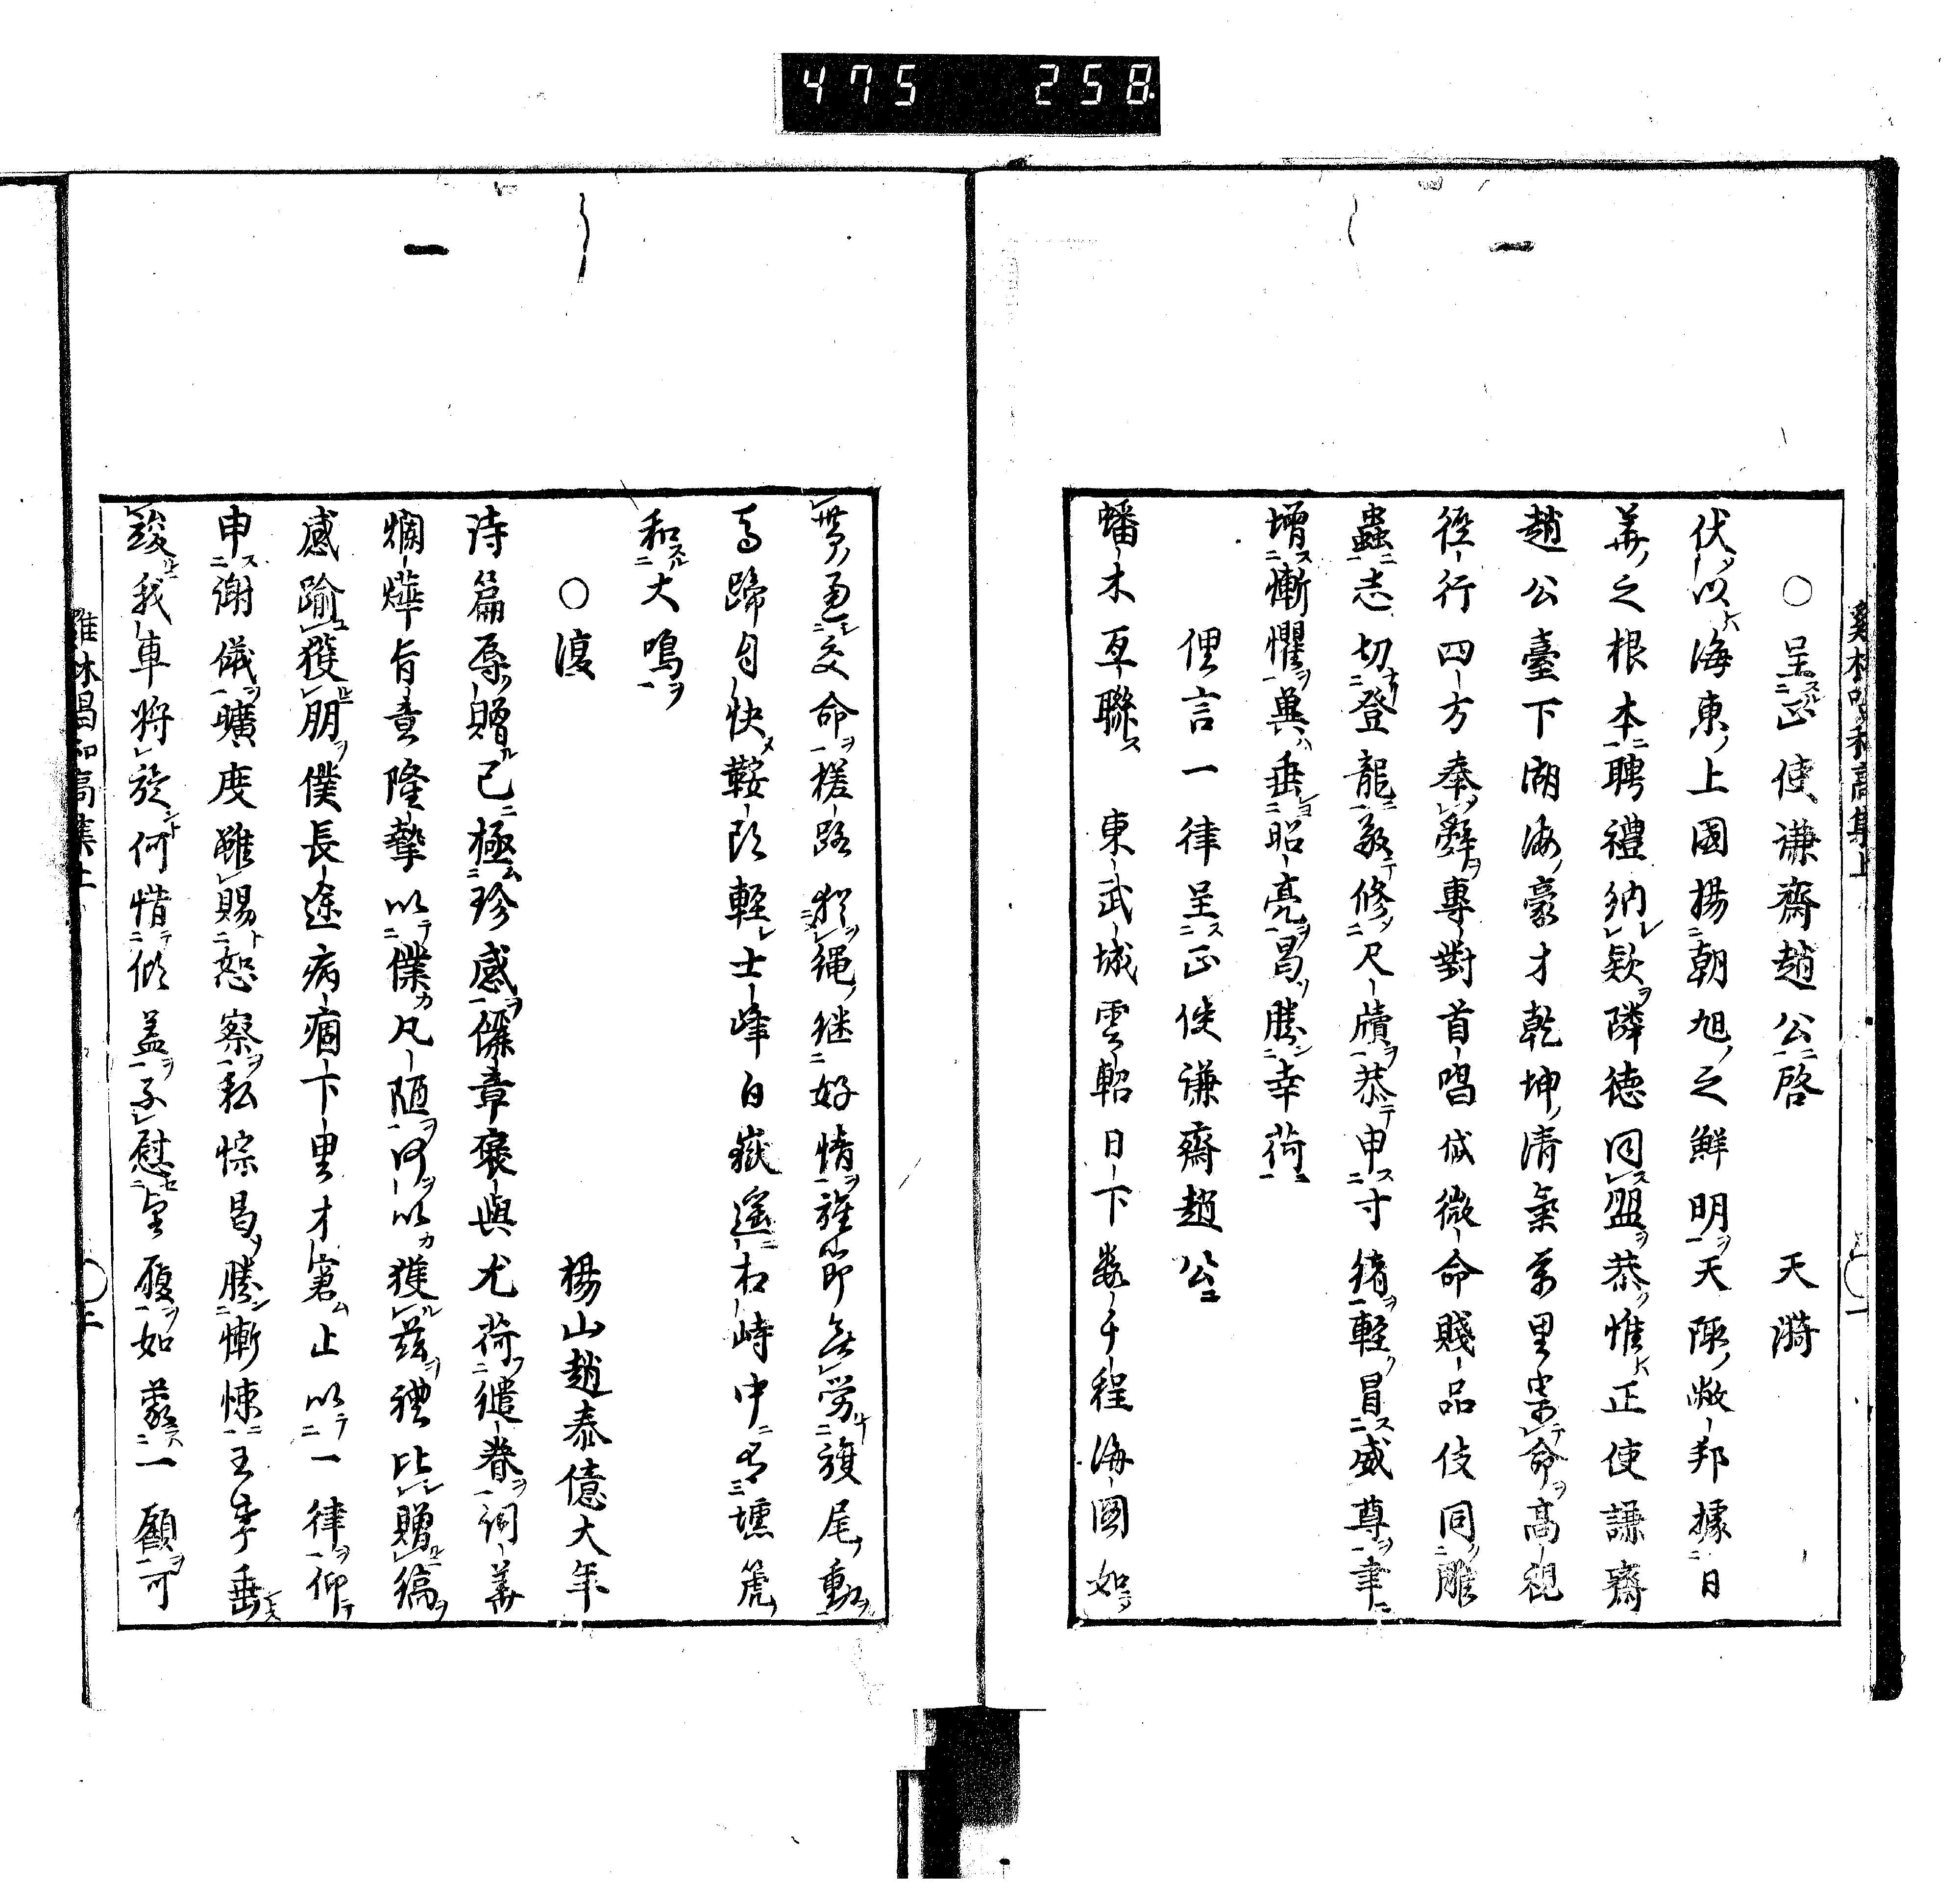 475 258
○呈正使謙齋趙公啓 天漪
伏以海東上國揚朝旭之鮮明天陬敝邦據日
華之根本聘禮納欵隣徳同盟恭惟正使謙齋
趙公臺下湖海豪才乾坤清氣萬里啣命高視
徑行四方奉辭專對首唱 微命賤品伎同雕
蟲志切登龍敬修尺牘恭申寸緒輕冒威尊聿
增慚懼冀垂昭亮曷勝幸荷
俚言一律呈正使謙齋趙公
蟠木互聯東武城雲軺日下數千程海圖如
貫 交命槎路 繩继好情旌節 勞旗尾動
馬蹄自快鞍頭輕士峰白嶽遥相峙中有壎篪
和大鳴
○復 楊山趙泰億大年
詩篇辱贈已極珍感儷章褒與尤荷繾眷詞華
爛燁旨意隆摯以僕凡陋何以獲茲禮比贈縞
感踰獲朋僕長途病痼下里才窘止以一律仰
申謝儀曠度雖賜恕察私悰曷勝慚悚王事垂
竣我車將旋何惜傾盖 慰 願如蒙一顧可
雞林唱和高集上 ○一
雞林唱和高集上 ○二